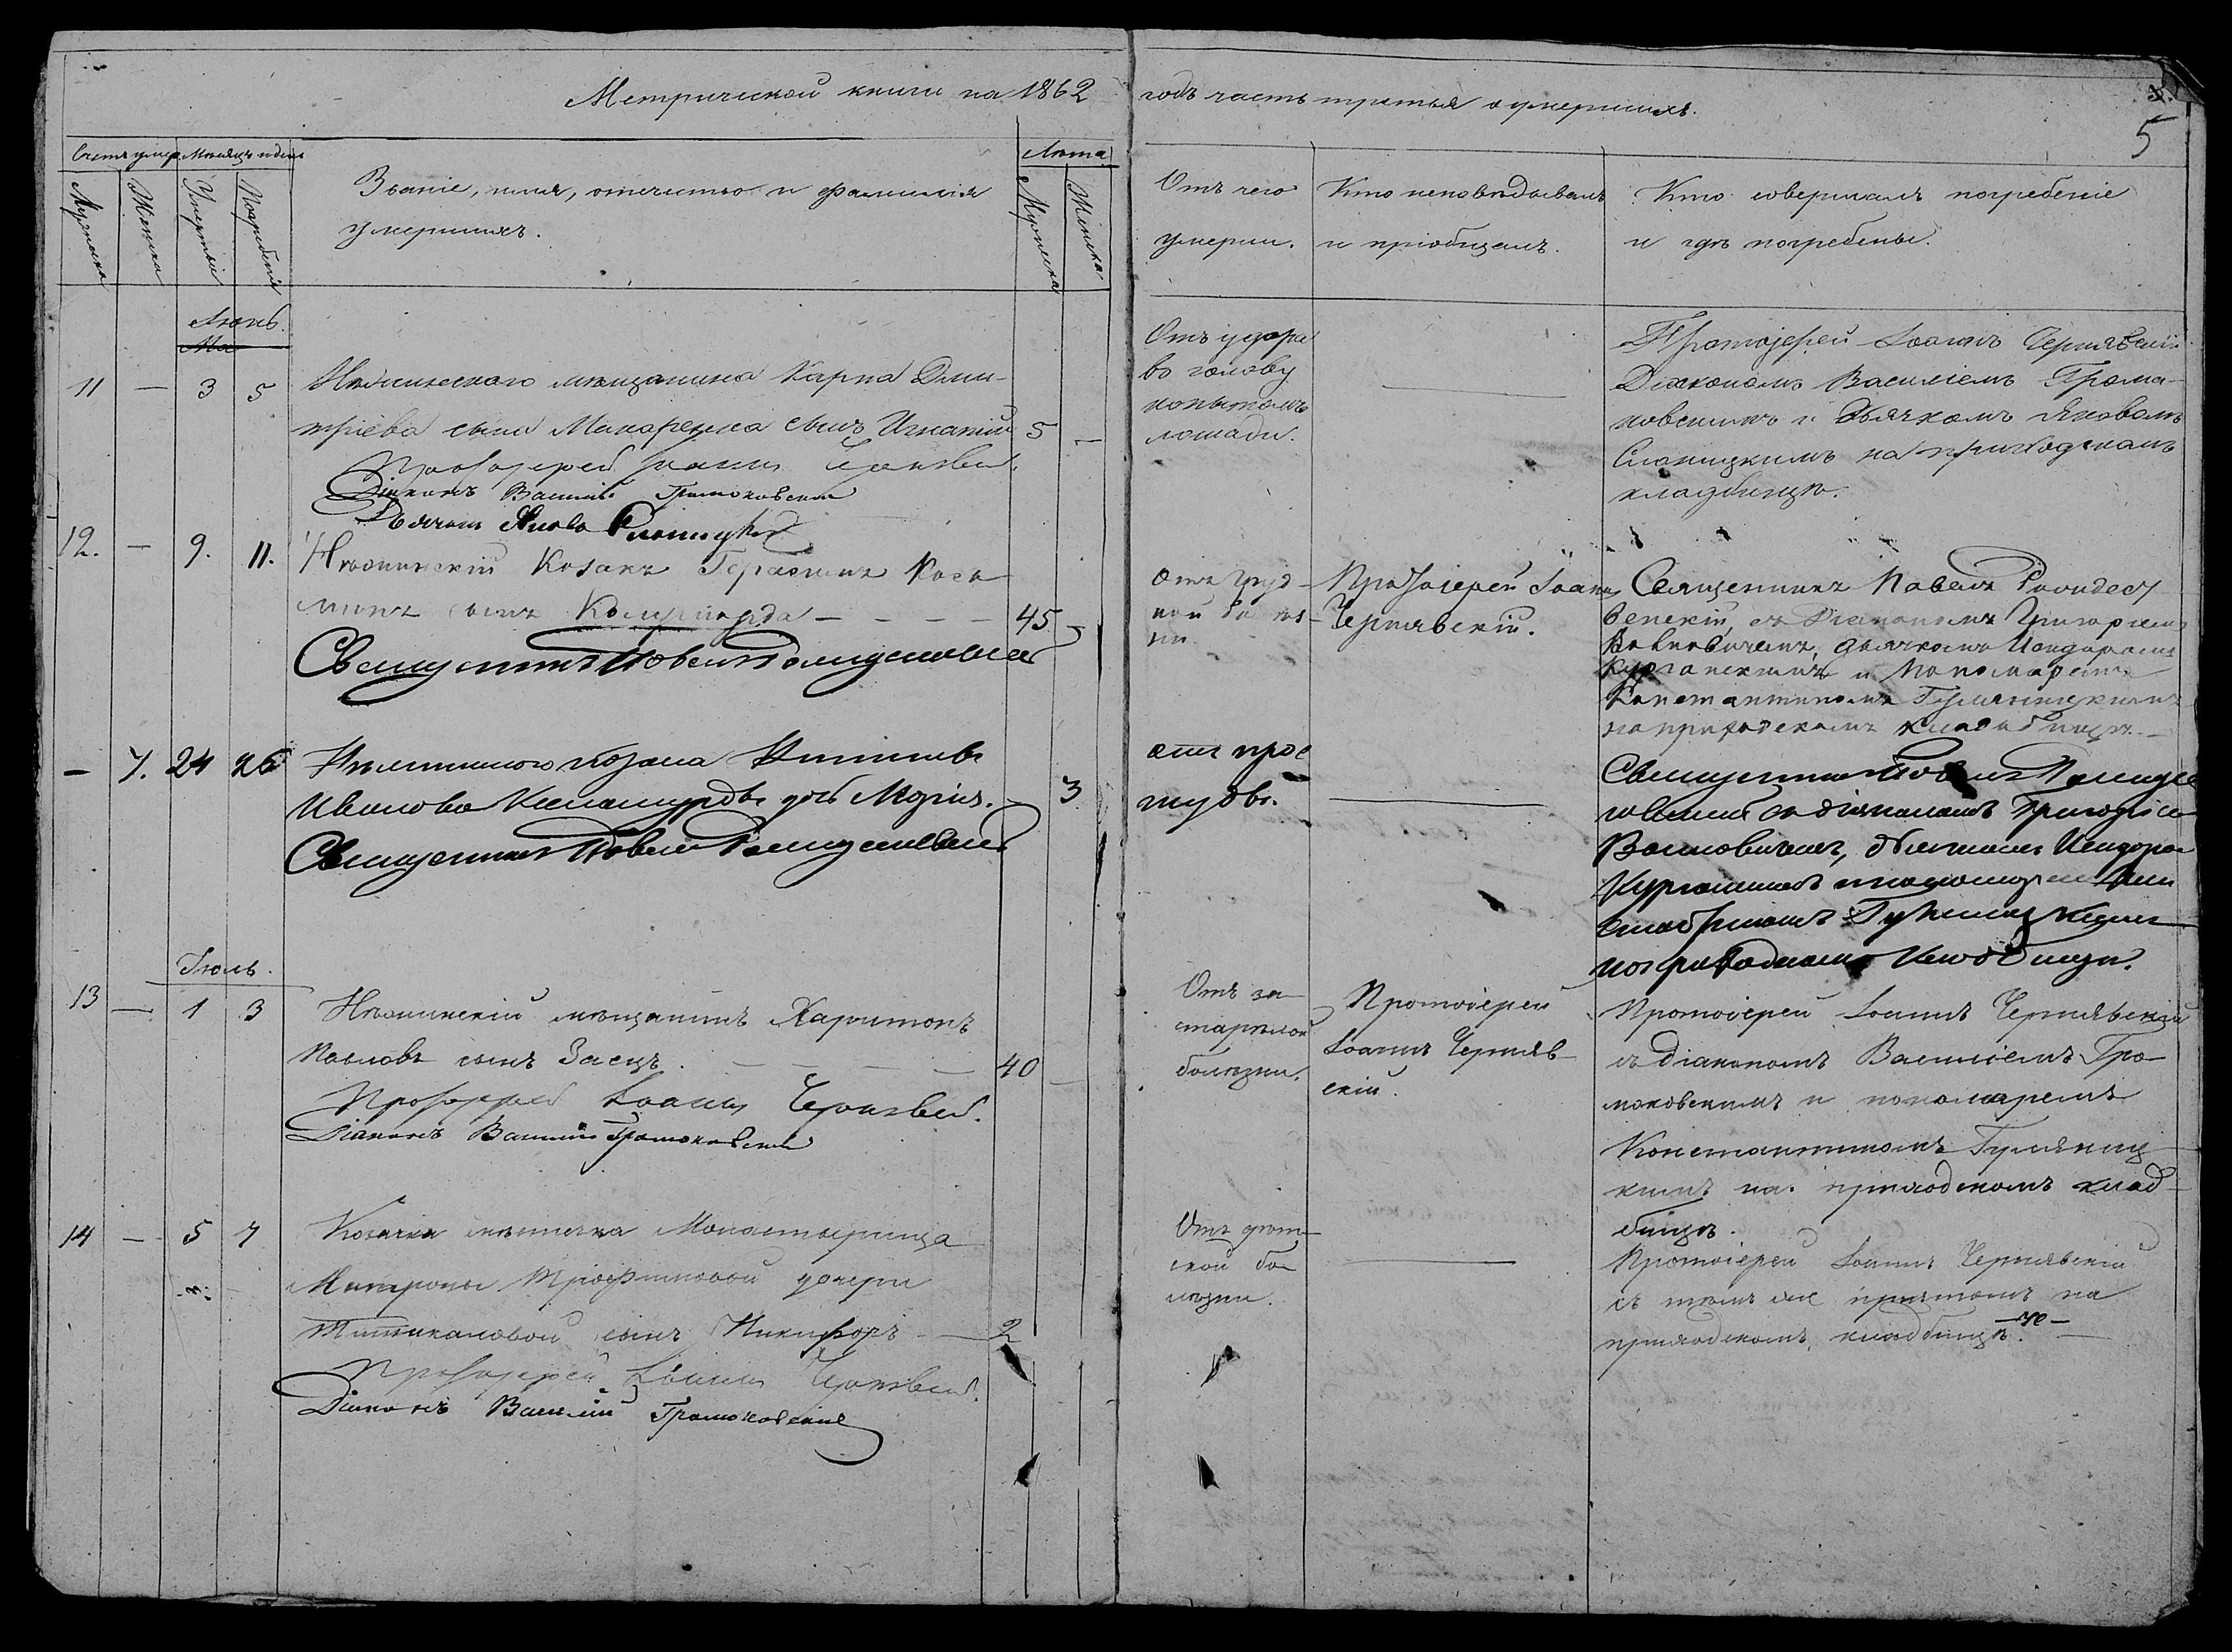 Метрической книги на 1862
годъ часть третья о умершихъ.
5
Счетъ умер.
Мѣсяцъ и день
Лѣта
Мужеска
Женска
Умертвій
Погребенія
Званіе, имя, отчество и фамилія
умершихъ.
Мужеска
Женска
Отъ чего
умерли.
Кто исповѣдывалъ
и пріобщалъ.
Кто совершалъ погребеніе
и гдѣ погребены.
Іюнь.
11 — 3 5
Нѣжинскаго мѣщанина Карпа Дми-
тріева сына Макаренка сынъ Игнатій 5 —
Протоіерей Іоаннъ Чернявскій.
Діаконъ Василій Громоковскій
Дьячокъ Яковъ
Отъ удара
въ голову
копытомъ
лошади.
Протоіерей Іоаннъ Чернявскій
Діакономъ Василіемъ Громо-
ковскимъ и Дьячкомъ Яковомъ
на приходскомъ
кладбищѣ.
12. — 9. 11.
Нѣжинскій Козакъ Герасимъ Козь-
минъ сынъ 45 —
Священникъ Павелъ
Отъ груд-
ной болѣз-
ни.
Протоіерей Іоаннъ
Чернявскій.
Священникъ Павелъ
съ Діакономъ Григоріемъ
дьячкомъ Исидоромъ
Курганскимъ и Пономаремъ
Константиномъ Гумяницкимъ
на приходскомъ кладбищѣ.
— 7. 24 26
Нѣжинского козака
Иванова дочь Марія. — 3
Священникъ Павелъ
отъ прос
туды.
Священникъ Павелъ
съ діакономъ Григоріемъ
Исидоромъ
Курганскимъ
приходскомъ кладбищѣ.
Іюль.
13 — 1 3
Нѣжинскій мѣщанинъ Харитонъ
Павловъ сынъ Заецъ. 40 —
Протоіерей Іоаннъ Чернявскій.
Діаконъ Василій Громоковскій
Отъ за-
старѣлой
болѣзни.
Протоіерей
Іоаннъ Черняв-
скій.
Протоіерей Іоаннъ Чернявскій
съ діакономъ Василіемъ Гро-
моковскимъ и пономаремъ
Константиномъ Гумяниц
кимъ на приходскомъ клад-
бищѣ.
14 — 5 7
Козачки мѣстечка Монастырища
Матроны Трофимовой дочери
сынъ Никифоръ — 2
Протоіерей Іоаннъ Чернявскій.
Діаконъ Василій Громоковскій
Отъ дѣт-
ской бо-
лѣзни.
Протоіерей Іоаннъ Чернявскій
съ тѣмъ же причтомъ на
приходскомъ кладбищѣ.